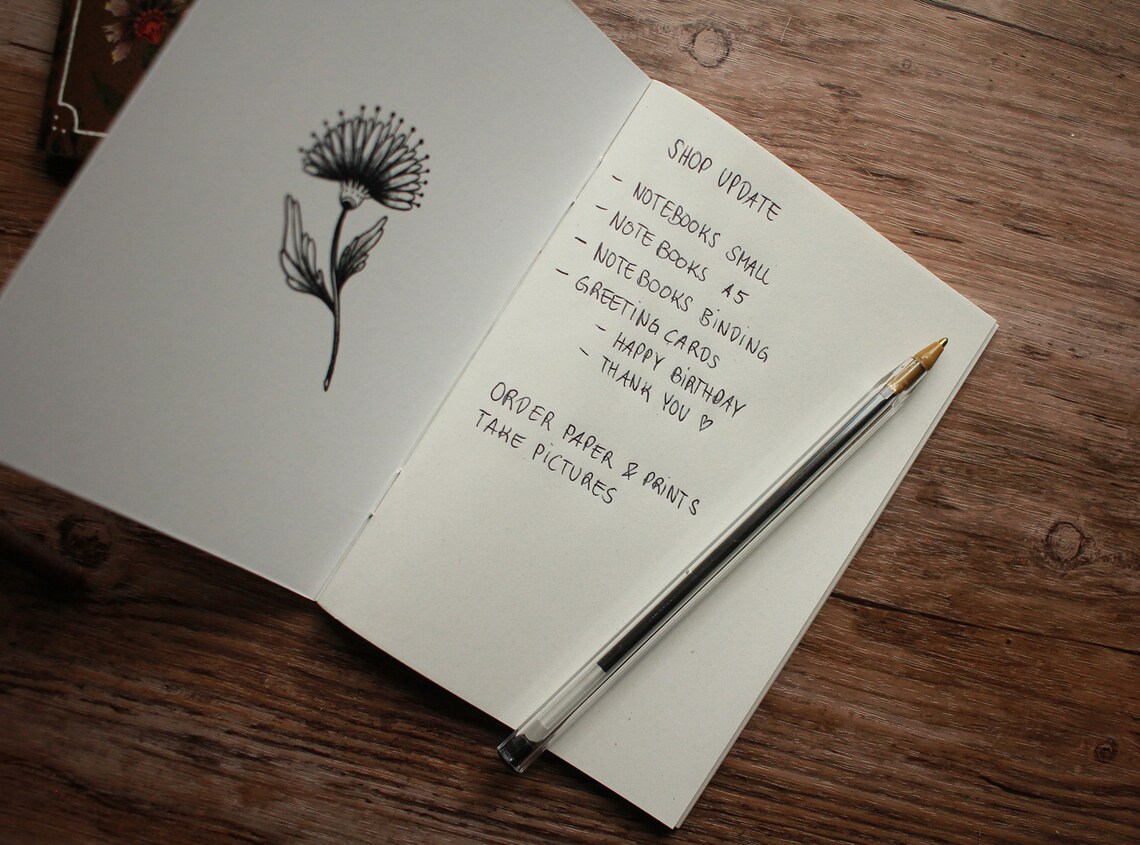 SHOP UPDATE
- NOTEBOOKS SMALL
- NOTEBOOKS A5
- NOTEBOOKS BINDING
- GREETING CARDS
- HAPPY BIRTHDAY
- THANK YOU ♡
ORDER PAPER & PRINTS
TAKE PICTURES